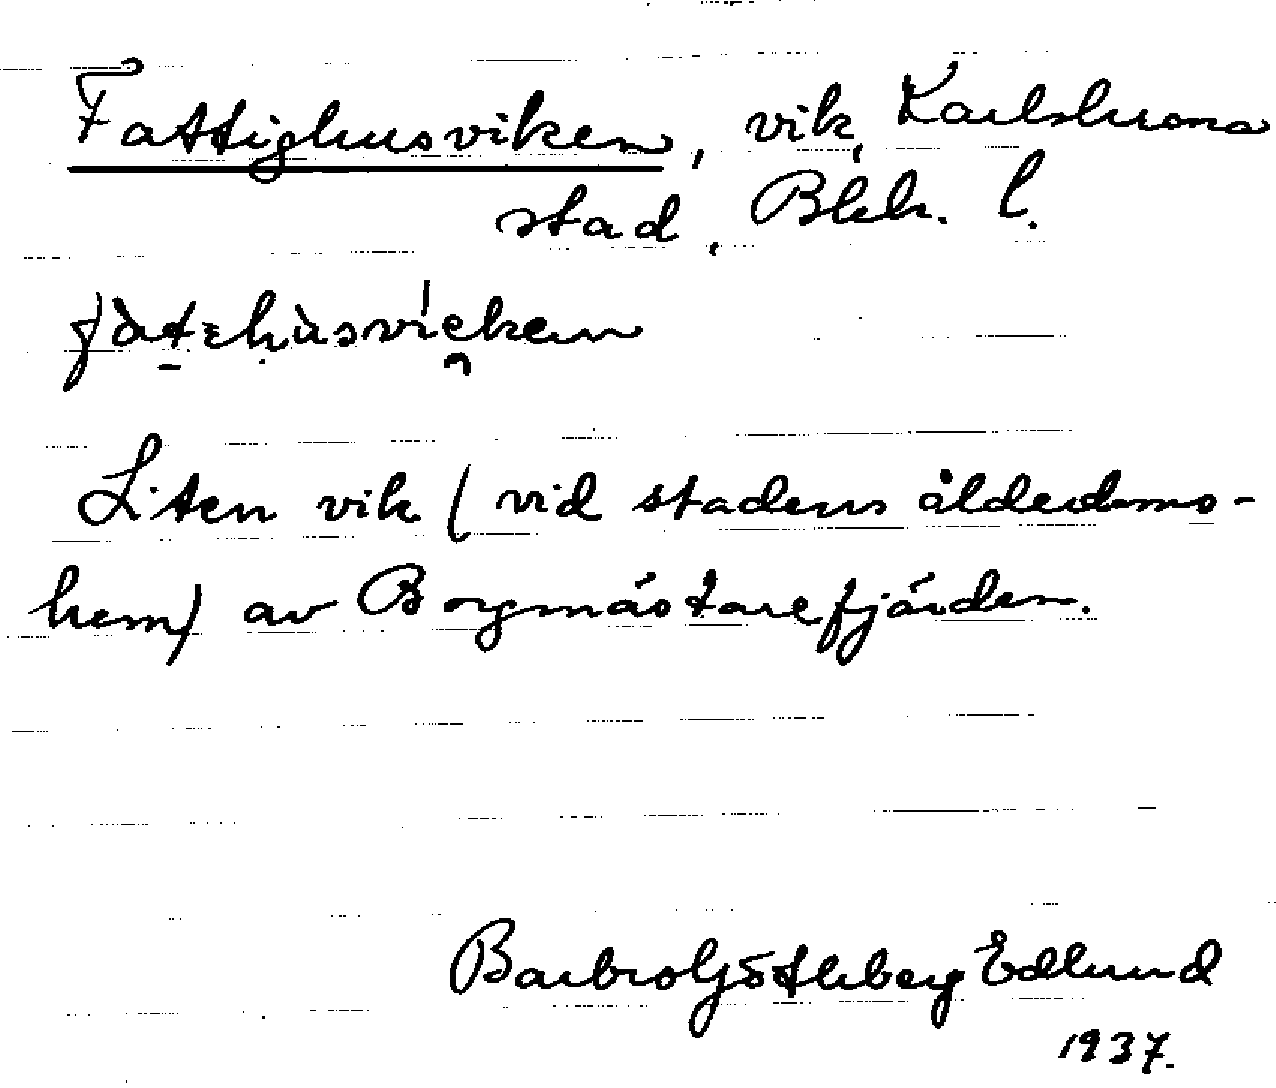 Fattighusviken, vik, Karlskrona
stad, Blek. l.
Liten vik (vid stadens ålderdoms-
hem) av Borgmästarefjärden.
Barbro Götheberg Edlund
1937.